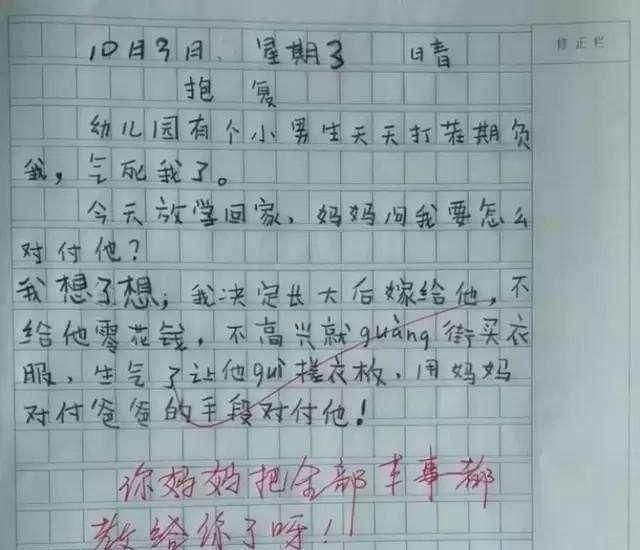 10月3日 星期3 晴
修正栏
抱复
幼儿园有个小男生天天打茬期负
我，气死我了。
今天放学回家，妈妈问我要怎么
对付他？
我想了想，我决定长大后嫁给他，不
给他零花钱，不高兴就guàng街买衣
服，生气了让他guì搓衣板，用妈妈
对付爸爸的手段对付他！
你妈妈把全部本事都
教给你了呀！